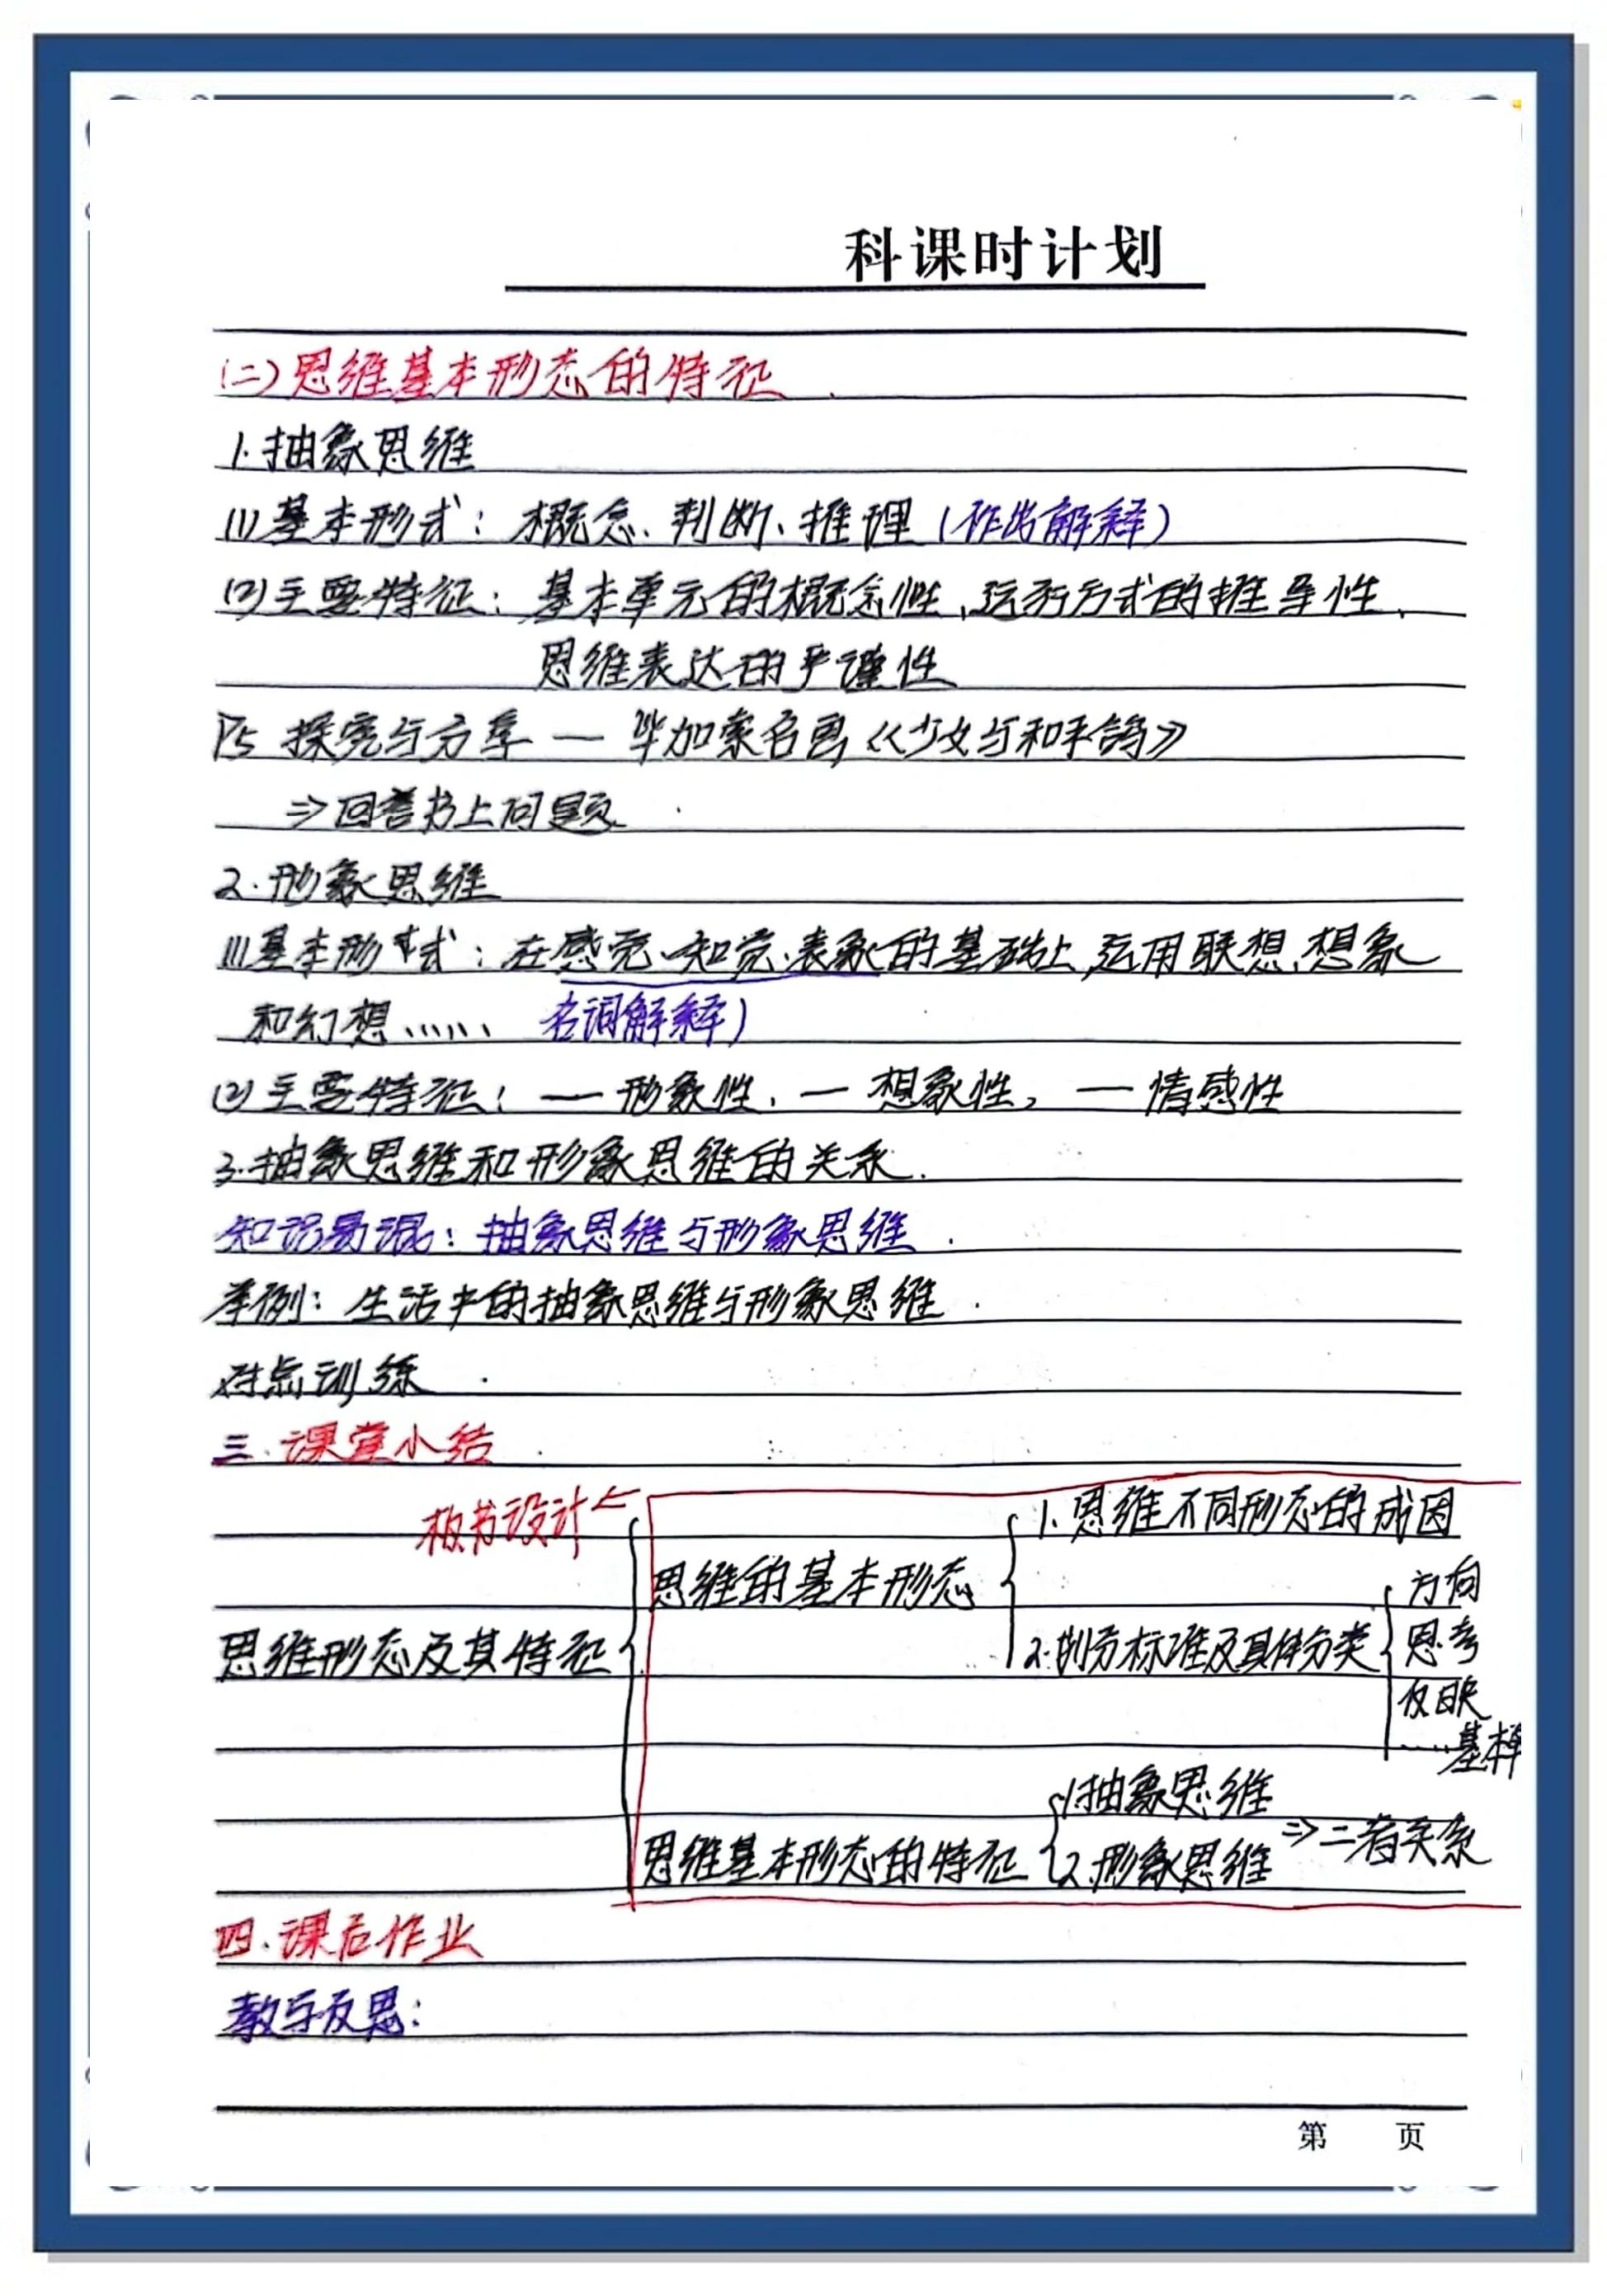 科课时计划
(二)思维基本形态的特征
1.抽象思维
(1)基本形式：概念、判断、推理(作出解释)
(2)主要特征：基本单元的概念性、运行方式的推导性、
思维表达的严谨性
P5 探究与分享 — 毕加索名画《少女与和平鸽》
⇒回答书上问题
2.形象思维
(1)基本形式：在感觉、知觉、表象的基础上,运用联想、想象
和幻想…… 名词解释)
(2)主要特征：— 形象性、— 想象性, — 情感性
3.抽象思维和形象思维的关系.
知识易混：抽象思维与形象思维
举例：生活中的抽象思维与形象思维
对点训练
三.课堂小结
板书设计←
1.思维不同形态的成因
思维的基本形态
方向
思维形态及其特征
2.划分标准及具体分类
思考
反映
……基本单
1.抽象思维
思维基本形态的特征
2.形象思维
⇒二者关系
四.课后作业
教学反思：
第 页